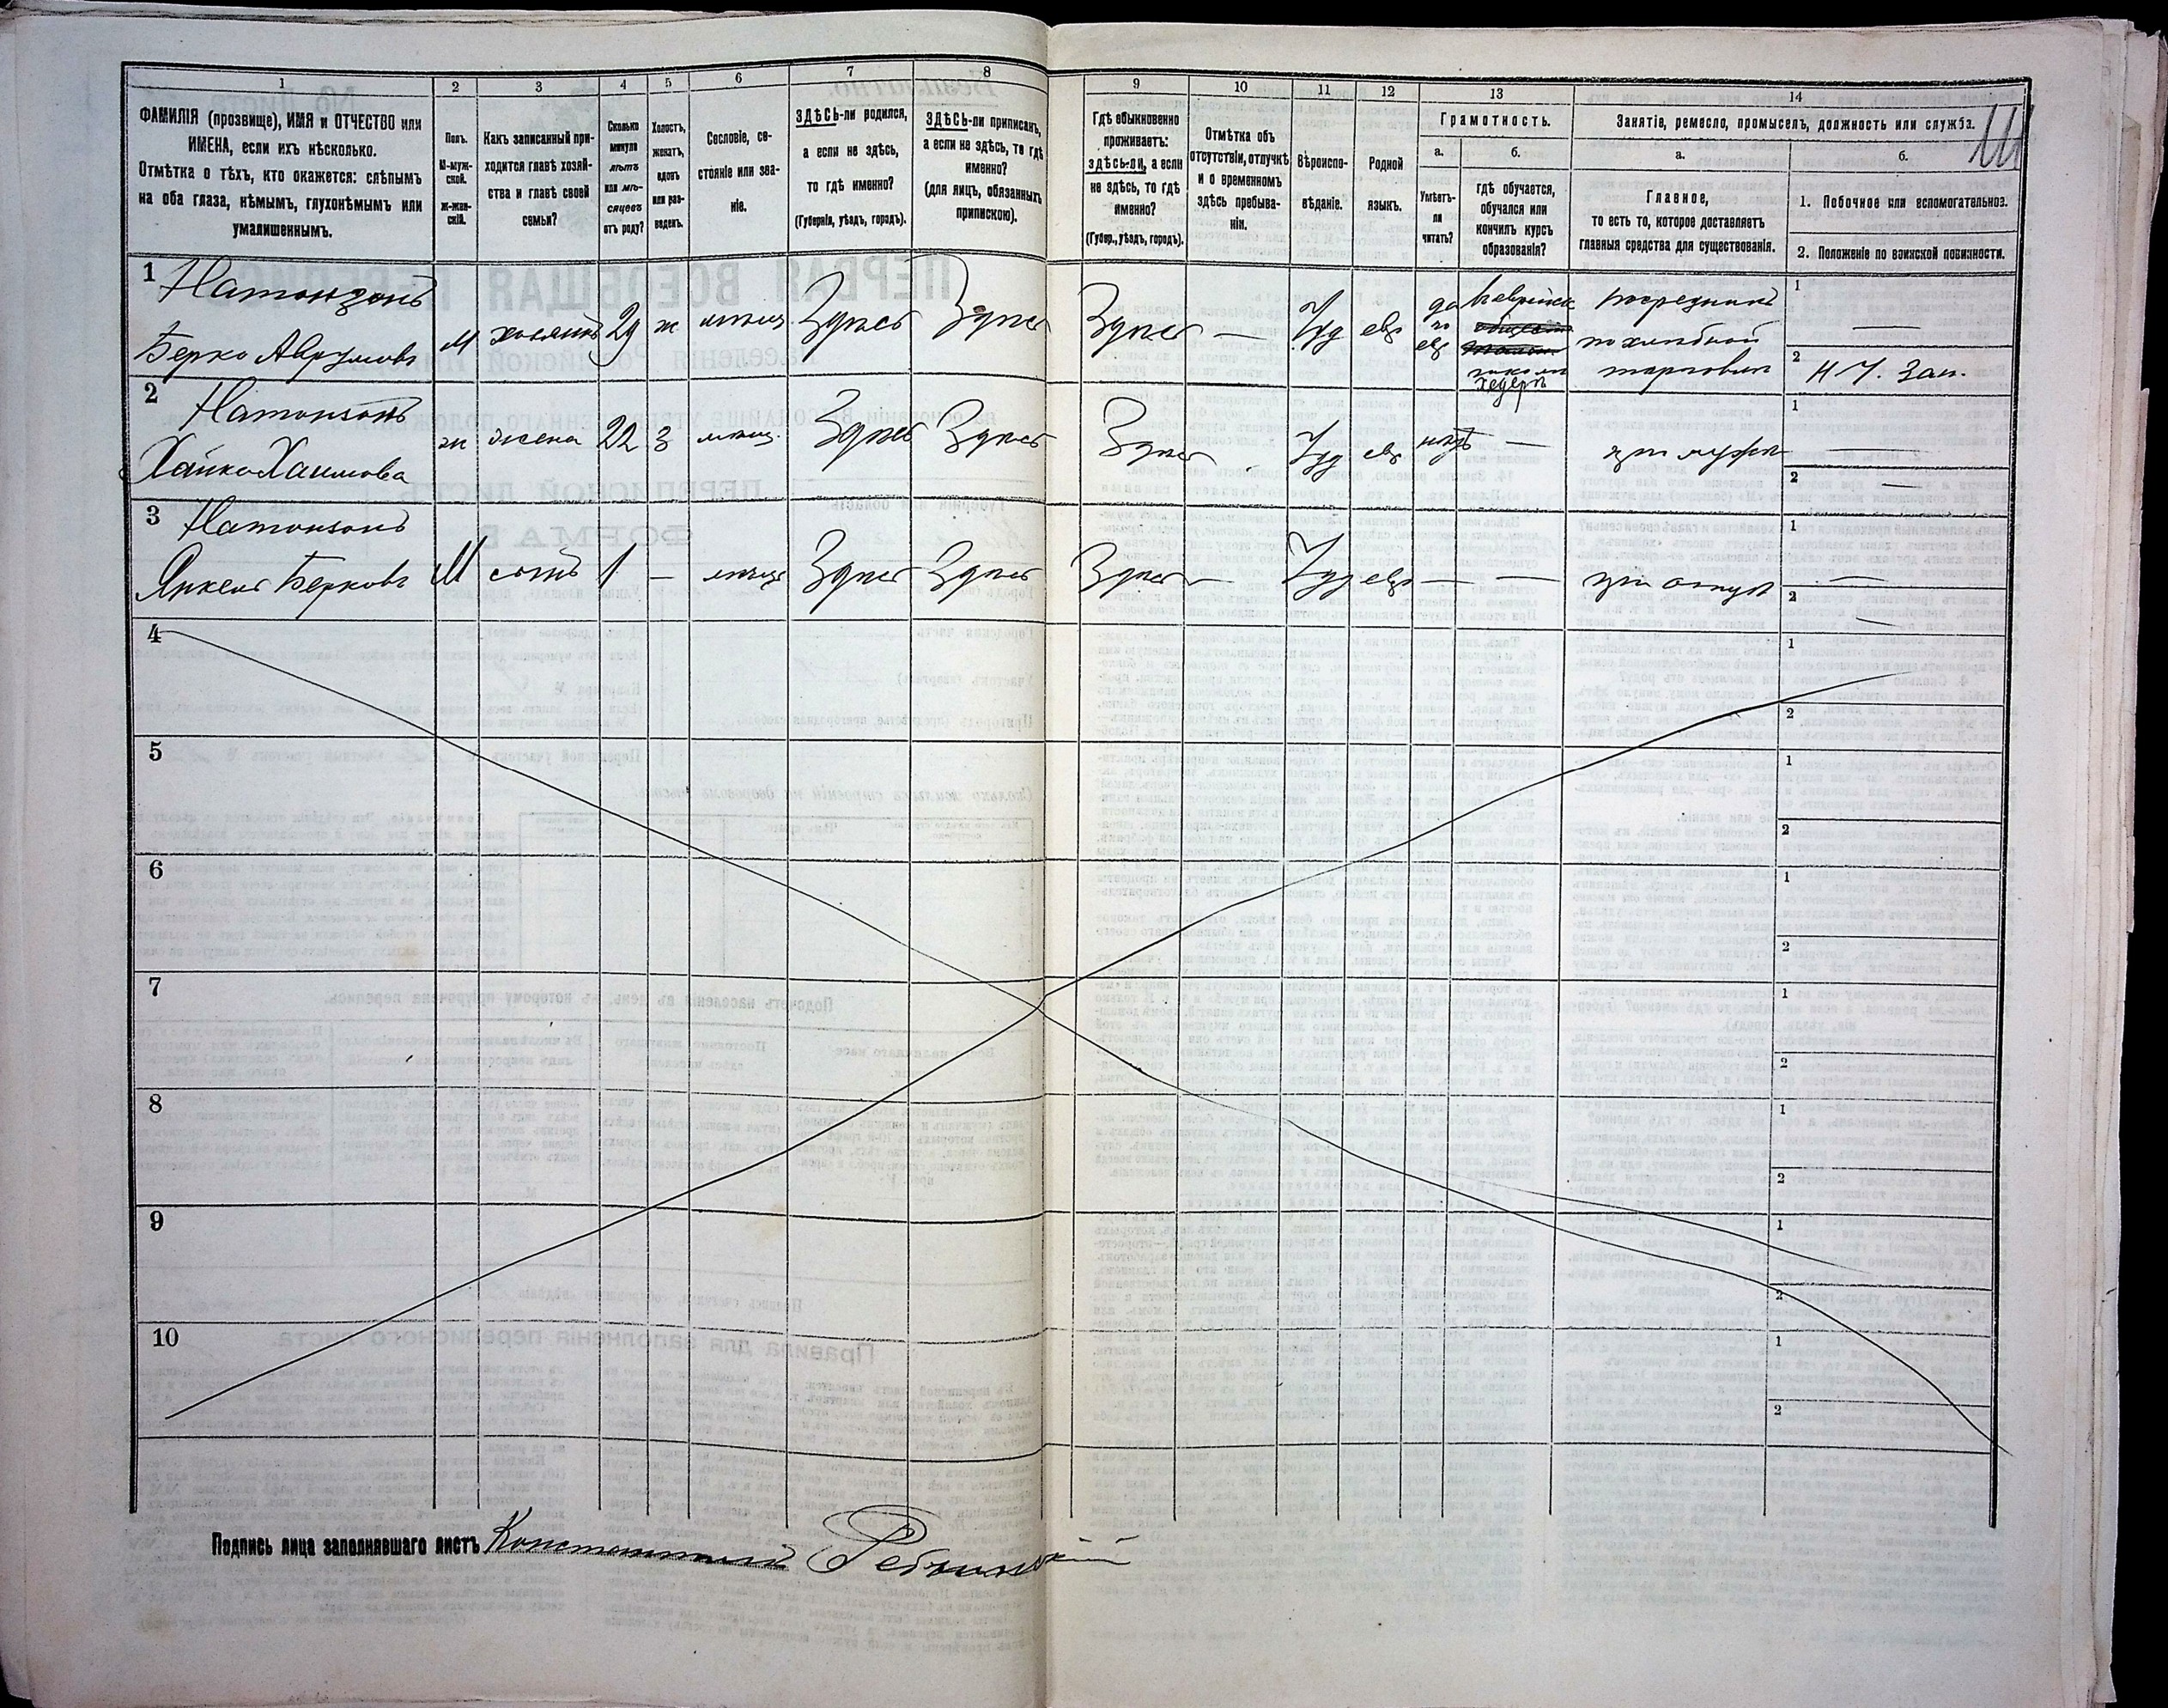 1 2 3 4 5 6 7 8 9 10 11 12 13 14
ФАМИЛІЯ (прозвище), ИМЯ и ОТЧЕСТВО или
ИМЕНА, если ихъ нѣсколько.
Отмѣтка о тѣхъ, кто окажется: слѣпымъ
на оба глаза, нѣмымъ, глухонѣмымъ или
умалишеннымъ.
Полъ.
М-муж-
ской.
Ж-жен-
скій.
Какъ записанный при-
ходится главѣ хозяй-
ства и главѣ своей
семьи?
Сколько
минуло
лѣтъ
или мѣ-
сяцевъ
отъ роду?
Холостъ,
женатъ,
вдовъ
или раз-
веденъ.
Сословіе, со-
стояніе или зва-
ніе.
ЗДѢСЬ-ли родился,
а если не здѣсь,
то гдѣ именно?
(Губернія, уѣздъ, городъ).
ЗДѢСЬ-ли приписанъ,
а если не здѣсь, то гдѣ
именно?
(для лицъ, обязанныхъ
припискою).
Гдѣ обыкновенно
проживаетъ:
здѣсь-ли, а если
не здѣсь, то гдѣ
именно?
(Губер., уѣздъ, городъ).
Отмѣтка объ
отсутствіи, отлучкѣ
и о временномъ
здѣсь пребыва-
ніи.
Вѣроиспо-
вѣданіе.
Родной
языкъ.
Грамотность.
а.
Умѣетъ-
ли
читать?
б.
гдѣ обучается,
обучался или
кончилъ курсъ
образованія?
Занятіе, ремесло, промыселъ, должность или служба.
а.
Главное,
то есть то, которое доставляетъ
главныя средства для существованія.
б.
1. Побочное или вспомогательное.
2. Положеніе по воинской повинности.
1 Натонзонъ
Берко Аврумовъ М хозяинъ 29 ж мѣщ. Здѣсь Здѣсь Здѣсь — Іуд евр
да
по
евр
школѣ
хедеръ
посредникъ
по хлѣбной
торговлѣ
1 —
2 Н. Ч. Зап.
2 Натонзонъ
Хайка Хаимова ж жена 22 З мѣщ. Здѣсь Здѣсь Здѣсь Іуд евр нѣтъ — при мужѣ
1 —
2 —
3 Натонзонъ
Янкель Берковъ М сынъ 1 — мѣщ Здѣсь Здѣсь Здѣсь — Іуд евр — — при отцѣ
1 —
2 —
4 1
2
5 1
2
6 1
2
7 1
2
8 1
2
9 1
2
10 1
2
Подпись лица заполнявшаго листъ Константинъ